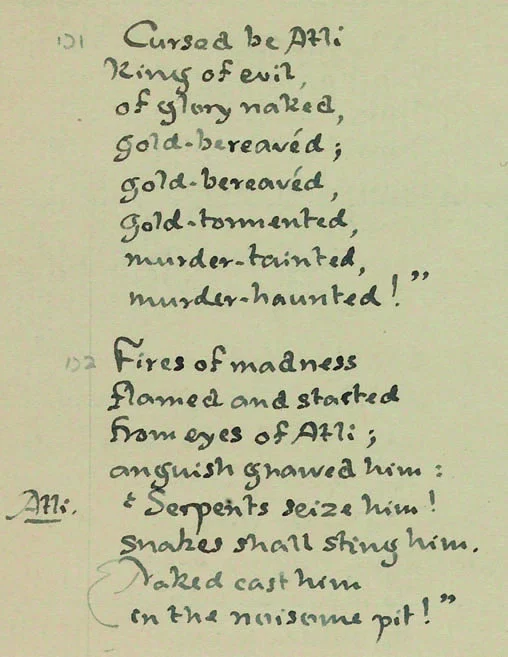 131 Cursed be Atli
King of evil,
of glory naked,
gold-bereavéd;
gold-bereavéd,
gold-tormented,
murder-tainted,
murder-haunted!”
132 Fires of madness
flamed and started
from eyes of Atli;
anguish gnawed him:
Atli. “Serpents seize him!
snakes shall sting him.
Naked cast him
in the noisome pit!”